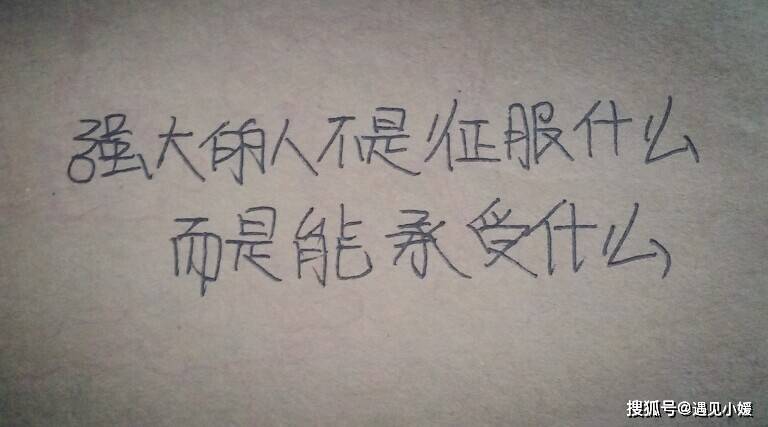 强大的人不是征服什么
而是能承受什么
搜狐号@遇见小媛